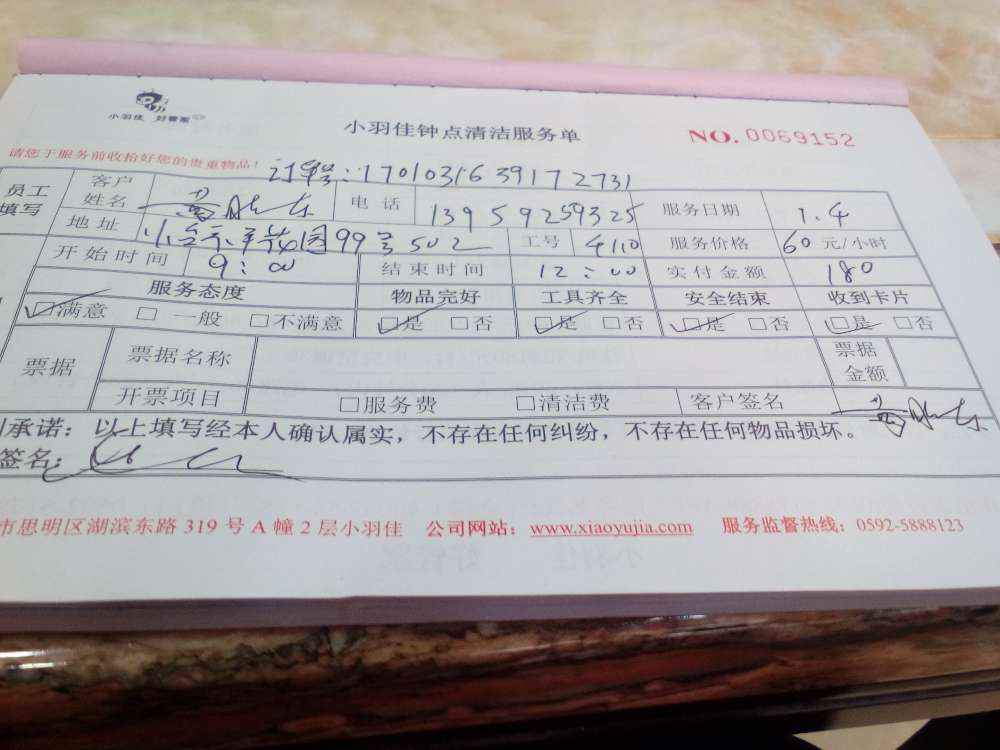 小羽佳 好管家
小羽佳钟点清洁服务单
NO. 0069152
请您于服务前收拾好您的贵重物品！
订单号：1701031639172731
员工填写 客户姓名 电话 13959259325 服务日期 1.4
地址 花园99号502 工号 4110 服务价格 60元/小时
开始时间 9：00 结束时间 12：00 实付金额 180
服务态度 物品完好 工具齐全 安全结束 收到卡片
☑满意 □一般 □不满意 ☑是 □否 ☑是 □否 ☑是 □否 ☑是 □否
票据 票据名称 票据金额
开票项目 □服务费 □清洁费 客户签名
承诺：以上填写经本人确认属实，不存在任何纠纷，不存在任何物品损坏。
签名：
市思明区湖滨东路 319 号 A 幢 2 层小羽佳 公司网站：www.xiaoyujia.com 服务监督热线：0592-5888123